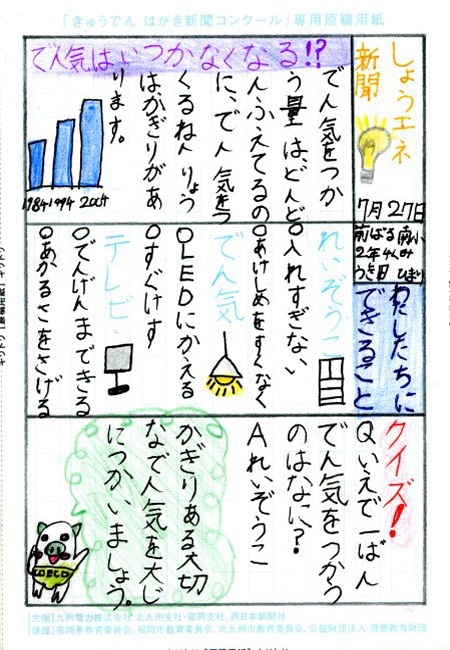 「きゅうでん はがき新聞コンクール」専用原稿用紙
しょうエネ
新聞
7月27日
前ばる南小
2年4くみ
でん気はいつかなくなる!?
でん気をつか
う量は、どんど
んふえてるの
に、でん気をつ
くるねんりょう
はかぎりがあ
ります。
1984 1994 2004
わたしたちに
できること
れいぞうこ
○入れすぎない
○あけしめをすくなく
でん気
○LEDにかえる
○すぐけす
テレビ
○でんげんまできる
○あかるさをさげる
クイズ!
Qいえで一ばん
でん気をつかう
のはなに?
Aれいぞうこ
かぎりある大切
なでん気を大じ
につかいましょう。
【主催】九州電力株式会社 北九州支社・福岡支社、西日本新聞社
【後援】福岡県教育委員会、福岡市教育委員会、北九州市教育委員会、公益財団法人 理想教育財団